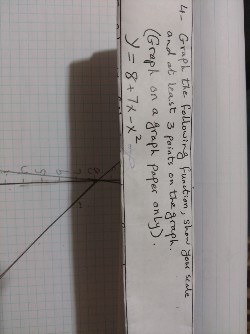 4- Graph the following function, show your scale
and at least 3 points on the graph.
(Graph on a graph paper only).
y = 8 + 7x - x²